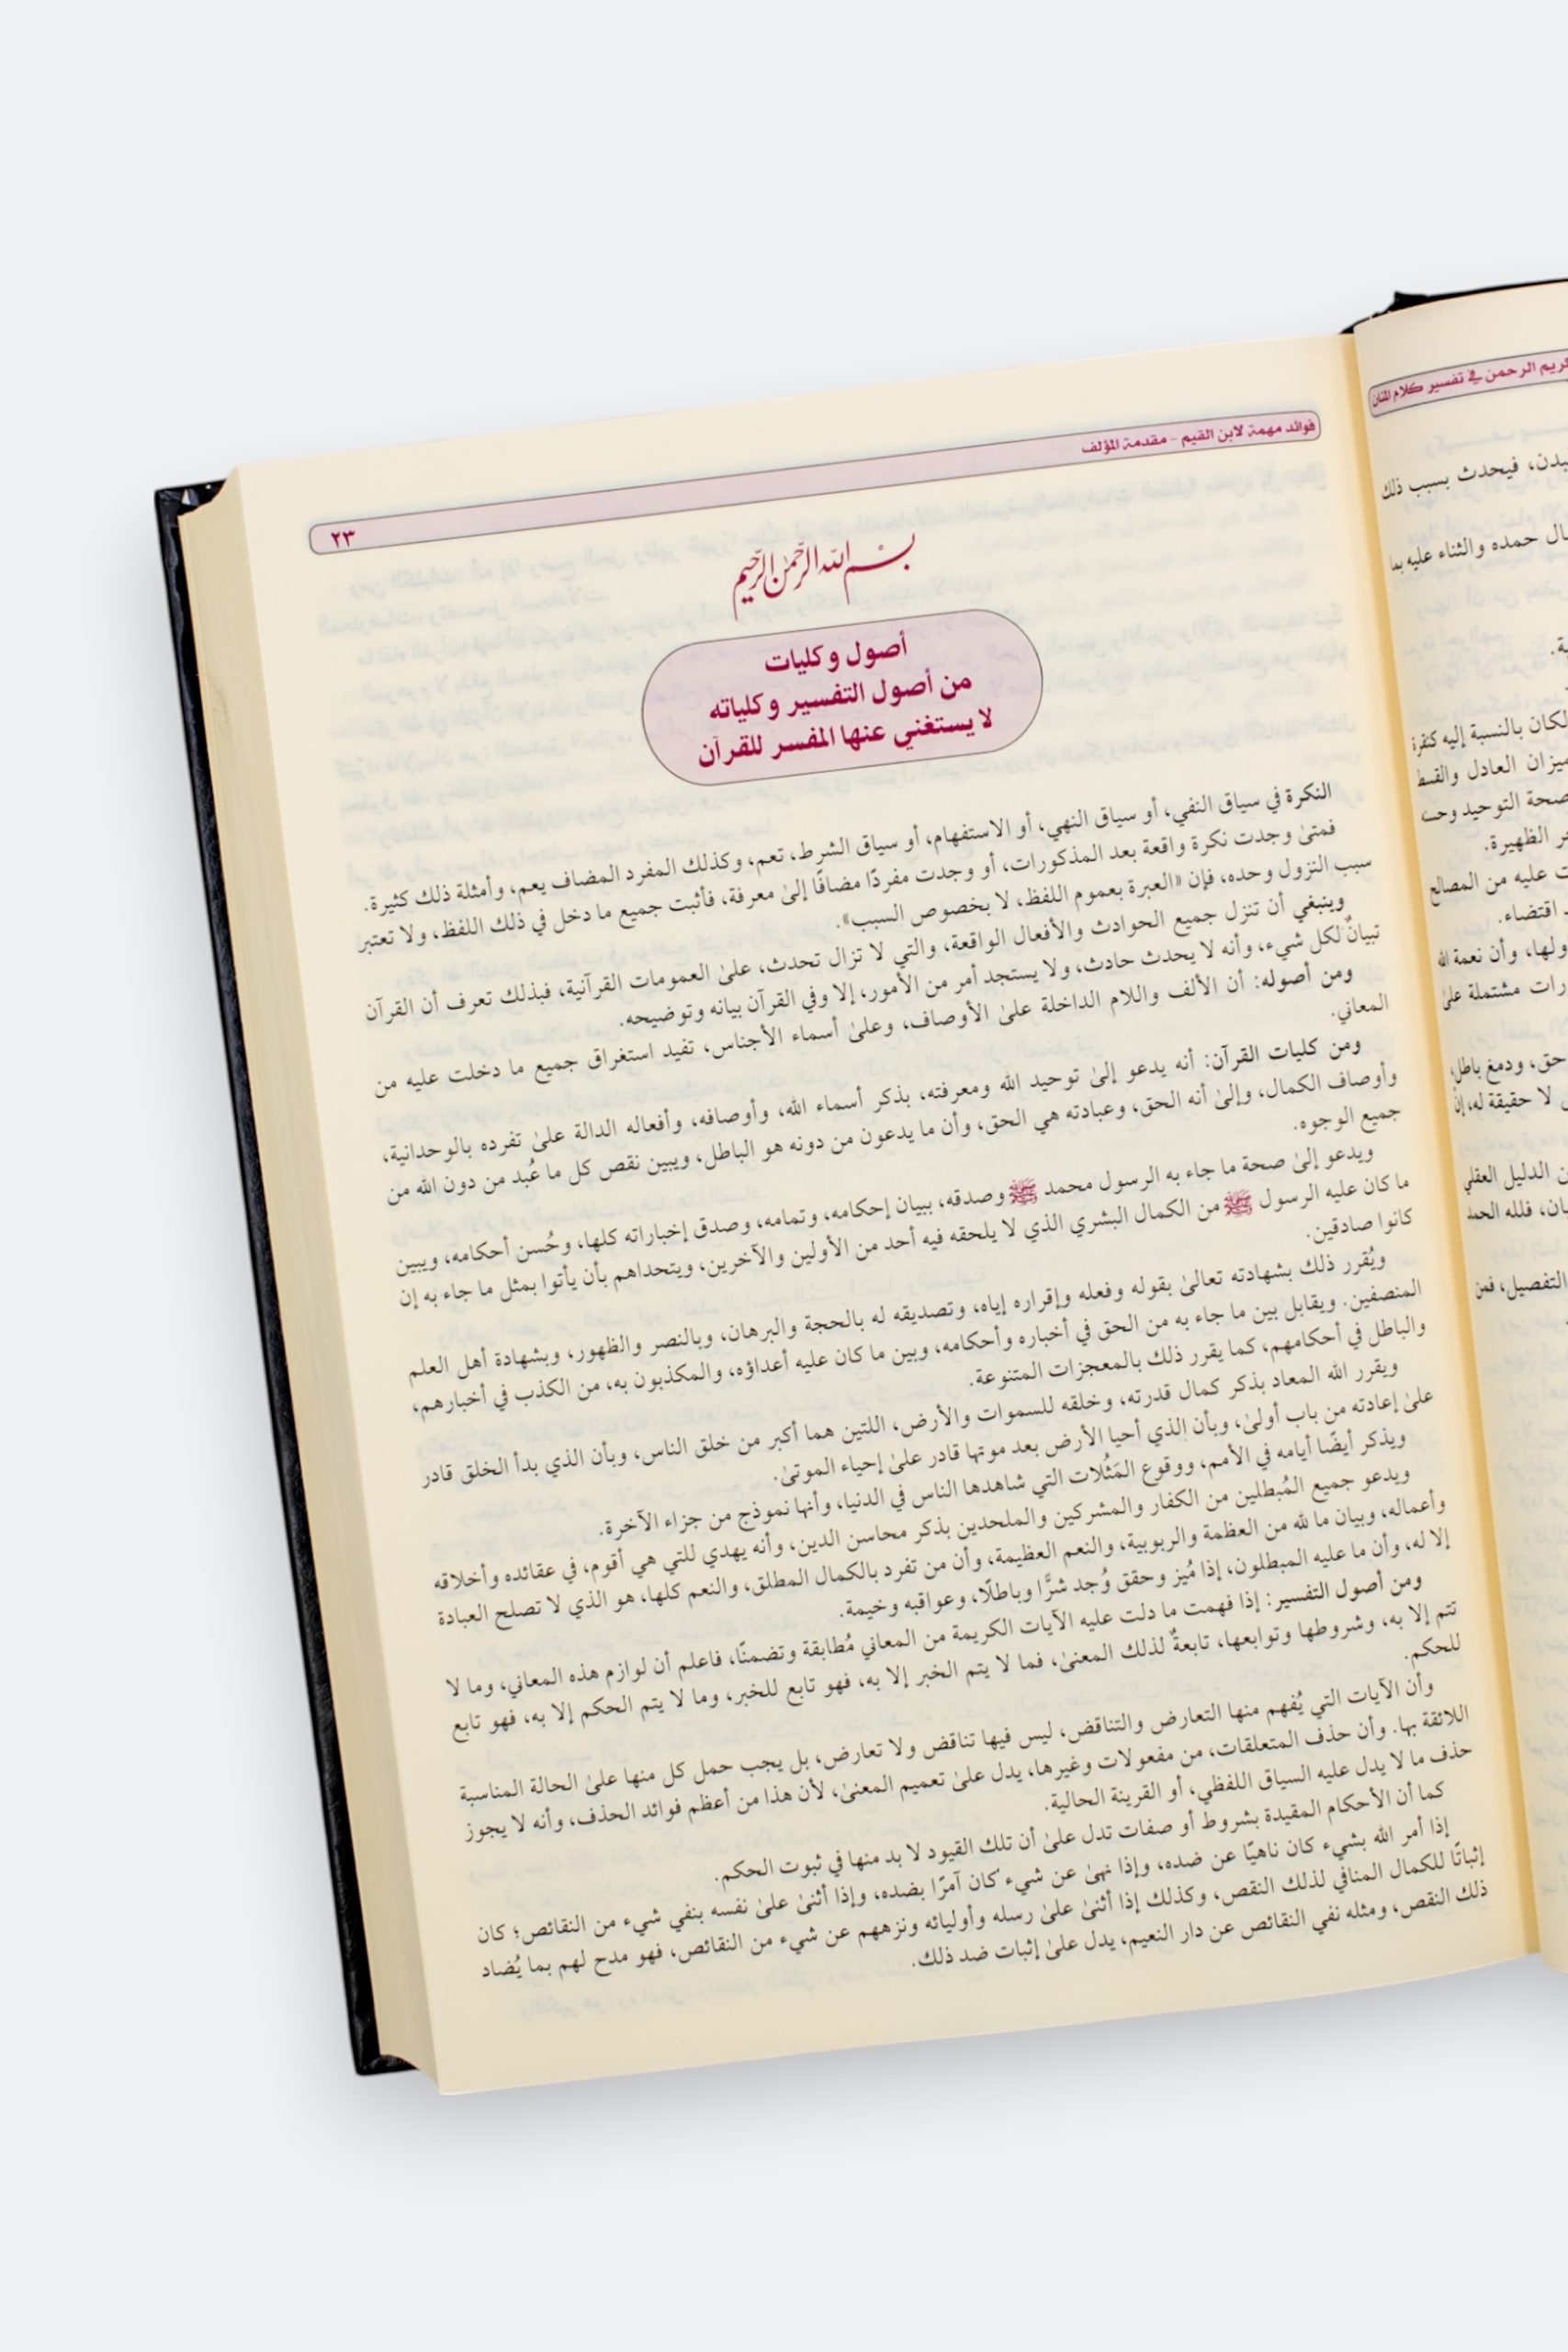 كريم الرحمن في تفسير كلام المنان
فيحدث بسبب ذلك
حمده والثناء عليه بما
لكان بالنسبة إليه كنقرة
العادل والقسط
صحة التوحيد وحسنه
الظهيرة.
عليه من المصالح
اقتضاء.
وأن نعمة الله
مشتملة علىٰ
حق، ودمغ باطل،
لا حقيقة له، إن
الدليل العقلي
فلله الحمد
التفصيل، فمن
فوائد مهمة لابن القيم - مقدمة المؤلف
٢٣
بسم الله الرحمن الرحيم
أصول وكليات
من أصول التفسير وكلياته
لا يستغني عنها المفسر للقرآن
النكرة في سياق النفي، أو سياق النهي، أو الاستفهام، أو سياق الشرط، تعم، وكذلك المفرد المضاف يعم، وأمثلة ذلك كثيرة.
فمتىٰ وجدت نكرة واقعة بعد المذكورات، أو وجدت مفردًا مضافًا إلىٰ معرفة، فأثبت جميع ما دخل في ذلك اللفظ، ولا تعتبر
سبب النزول وحده، فإن «العبرة بعموم اللفظ، لا بخصوص السبب».
وينبغي أن تنزل جميع الحوادث والأفعال الواقعة، والتي لا تزال تحدث، علىٰ العمومات القرآنية، فبذلك تعرف أن القرآن
تبيانٌ لكل شيء، وأنه لا يحدث حادث، ولا يستجد أمر من الأمور، إلا وفي القرآن بيانه وتوضيحه.
ومن أصوله: أن الألف واللام الداخلة علىٰ الأوصاف، وعلىٰ أسماء الأجناس، تفيد استغراق جميع ما دخلت عليه من
المعاني.
ومن كليات القرآن: أنه يدعو إلىٰ توحيد الله ومعرفته، بذكر أسماء الله، وأوصافه، وأفعاله الدالة علىٰ تفرده بالوحدانية،
وأوصاف الكمال، وإلىٰ أنه الحق، وعبادته هي الحق، وأن ما يدعون من دونه هو الباطل، ويبين نقص كل ما عُبد من دون الله من
جميع الوجوه.
ويدعو إلىٰ صحة ما جاء به الرسول محمد ﷺ وصدقه، ببيان إحكامه، وتمامه، وصدق إخباراته كلها، وحُسن أحكامه، ويبين
ما كان عليه الرسول ﷺ من الكمال البشري الذي لا يلحقه فيه أحد من الأولين والآخرين، ويتحداهم بأن يأتوا بمثل ما جاء به إن
كانوا صادقين.
ويُقرر ذلك بشهادته تعالىٰ بقوله وفعله وإقراره إياه، وتصديقه له بالحجة والبرهان، وبالنصر والظهور، وبشهادة أهل العلم
المنصفين. ويقابل بين ما جاء به من الحق في أخباره وأحكامه، وبين ما كان عليه أعداؤه، والمكذبون به، من الكذب في أخبارهم،
والباطل في أحكامهم، كما يقرر ذلك بالمعجزات المتنوعة.
ويقرر الله المعاد بذكر كمال قدرته، وخلقه للسموات والأرض، اللتين هما أكبر من خلق الناس، وبأن الذي بدأ الخلق قادر
علىٰ إعادته من باب أولىٰ، وبأن الذي أحيا الأرض بعد موتها قادر علىٰ إحياء الموتىٰ.
ويذكر أيضًا أيامه في الأمم، ووقوع المَثُلات التي شاهدها الناس في الدنيا، وأنها نموذج من جزاء الآخرة.
ويدعو جميع المُبطلين من الكفار والمشركين والملحدين بذكر محاسن الدين، وأنه يهدي للتي هي أقوم، في عقائده وأخلاقه
وأعماله، وبيان ما لله من العظمة والربوبية، والنعم العظيمة، وأن من تفرد بالكمال المطلق، والنعم كلها، هو الذي لا تصلح العبادة
إلا له، وأن ما عليه المبطلون، إذا مُيز وحقق وُجد شرًّا وباطلًا، وعواقبه وخيمة.
ومن أصول التفسير: إذا فهمت ما دلت عليه الآيات الكريمة من المعاني مُطابقة وتضمنًا، فاعلم أن لوازم هذه المعاني، وما لا
تتم إلا به، وشروطها وتوابعها، تابعةٌ لذلك المعنىٰ، فما لا يتم الخبر إلا به، فهو تابع للخبر، وما لا يتم الحكم إلا به، فهو تابع
للحكم.
وأن الآيات التي يُفهم منها التعارض والتناقض، ليس فيها تناقض ولا تعارض، بل يجب حمل كل منها علىٰ الحالة المناسبة
اللائقة بها. وأن حذف المتعلقات، من مفعولات وغيرها، يدل علىٰ تعميم المعنىٰ، لأن هذا من أعظم فوائد الحذف، وأنه لا يجوز
حذف ما لا يدل عليه السياق اللفظي، أو القرينة الحالية.
كما أن الأحكام المقيدة بشروط أو صفات تدل علىٰ أن تلك القيود لا بد منها في ثبوت الحكم.
إذا أمر الله بشيء كان ناهيًا عن ضده، وإذا نهىٰ عن شيء كان آمرًا بضده، وإذا أثنىٰ علىٰ نفسه بنفي شيء من النقائص؛ كان
إثباتًا للكمال المنافي لذلك النقص، وكذلك إذا أثنىٰ علىٰ رسله وأوليائه ونزههم عن شيء من النقائص، فهو مدح لهم بما يُضاد
ذلك النقص، ومثله نفي النقائص عن دار النعيم، يدل علىٰ إثبات ضد ذلك.